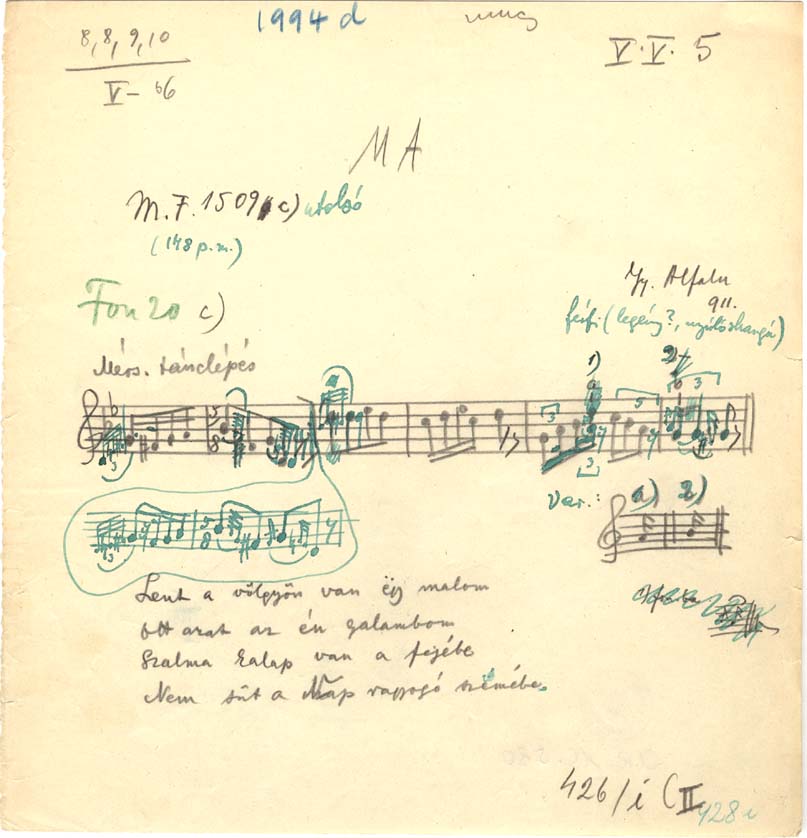 8, 8, 9, 10
V - b6
1994 d
V. V. 5
MA
M.F. 1509 c) utolsó
(148 p.m.)
Fon 20 c)
Gy. Alfalu
911.
férfi (legény?, nyújtóshangú)
Mérs. tánclépés
Var.: 1) 2)
Lent a völgyön van ëgy malom
Ott arat az én galambom
Szalma kalap van a fejébe
Nem süt a Nap ragyogó szëmébe.
426/i (II
428 i